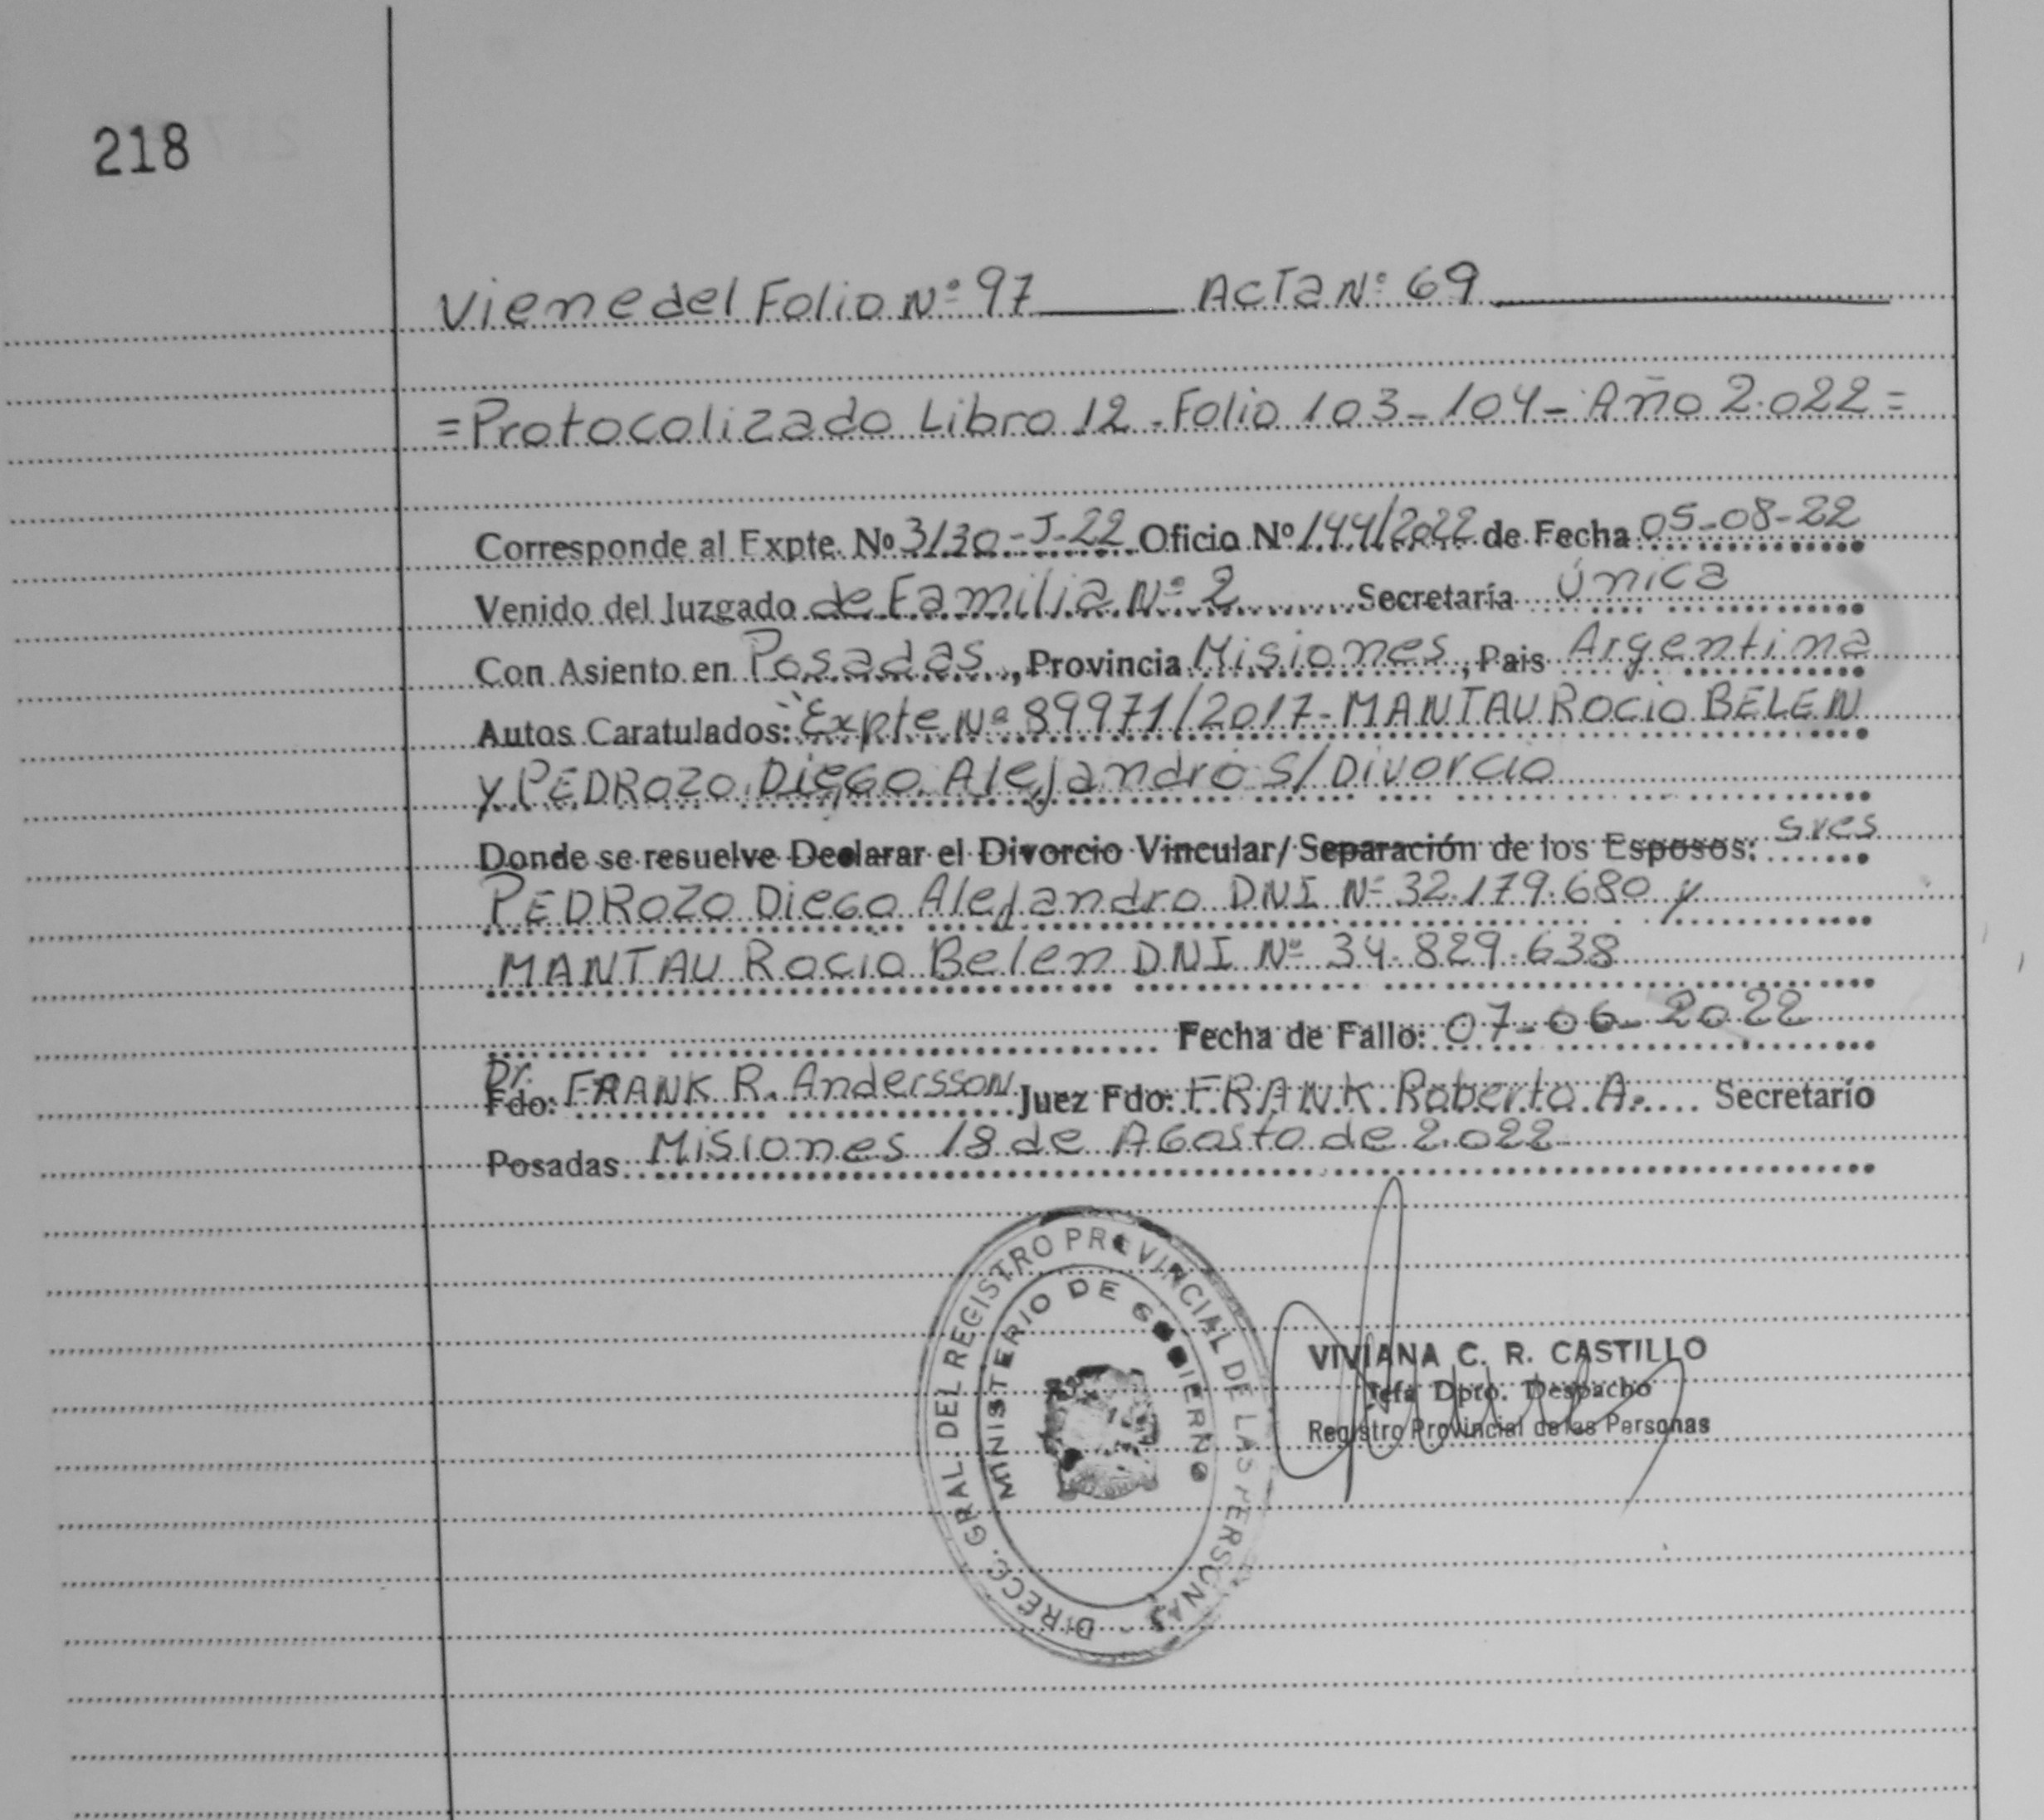 218
Viene del Folio Nº 97 ACTa Nº 69
=Protocolizado Libro 12-Folio 103-104-Año 2.022=
Corresponde al Expte. Nº 3130-J-22 Oficio Nº 144/2022 de Fecha 05-08-22
Venido del Juzgado de Familia Nº 2 Secretaría única
Con Asiento en Posadas, Provincia Misiones, Pais Argentina
Autos Caratulados: "Expte Nº 89971/2017-MANTAU ROCIO BELEN
y PEDROZO DIEGO Alejandro S/Divorcio
Donde se resuelve Declarar el Divorcio Vincular/Separación de los Esposos: sres
PEDROZO DIEGO Alejandro DNI Nº 32.179.680 y
MANTAU Rocio Belen DNI Nº 34.829.638
Fecha de Fallo: 07-06-2022
Dr.
Fdo: FRANK R. Andersson Juez Fdo: FRANK Roberto A. Secretario
Posadas Misiones 18 de AGosto de 2.022
DIRECC. GRAL. DEL REGISTRO PROVINCIAL DE LAS PERSONAS
MINISTERIO DE GOBIERNO
VIVIANA C. R. CASTILLO
Jefa Dpto. Despacho
Registro Provincial de las Personas